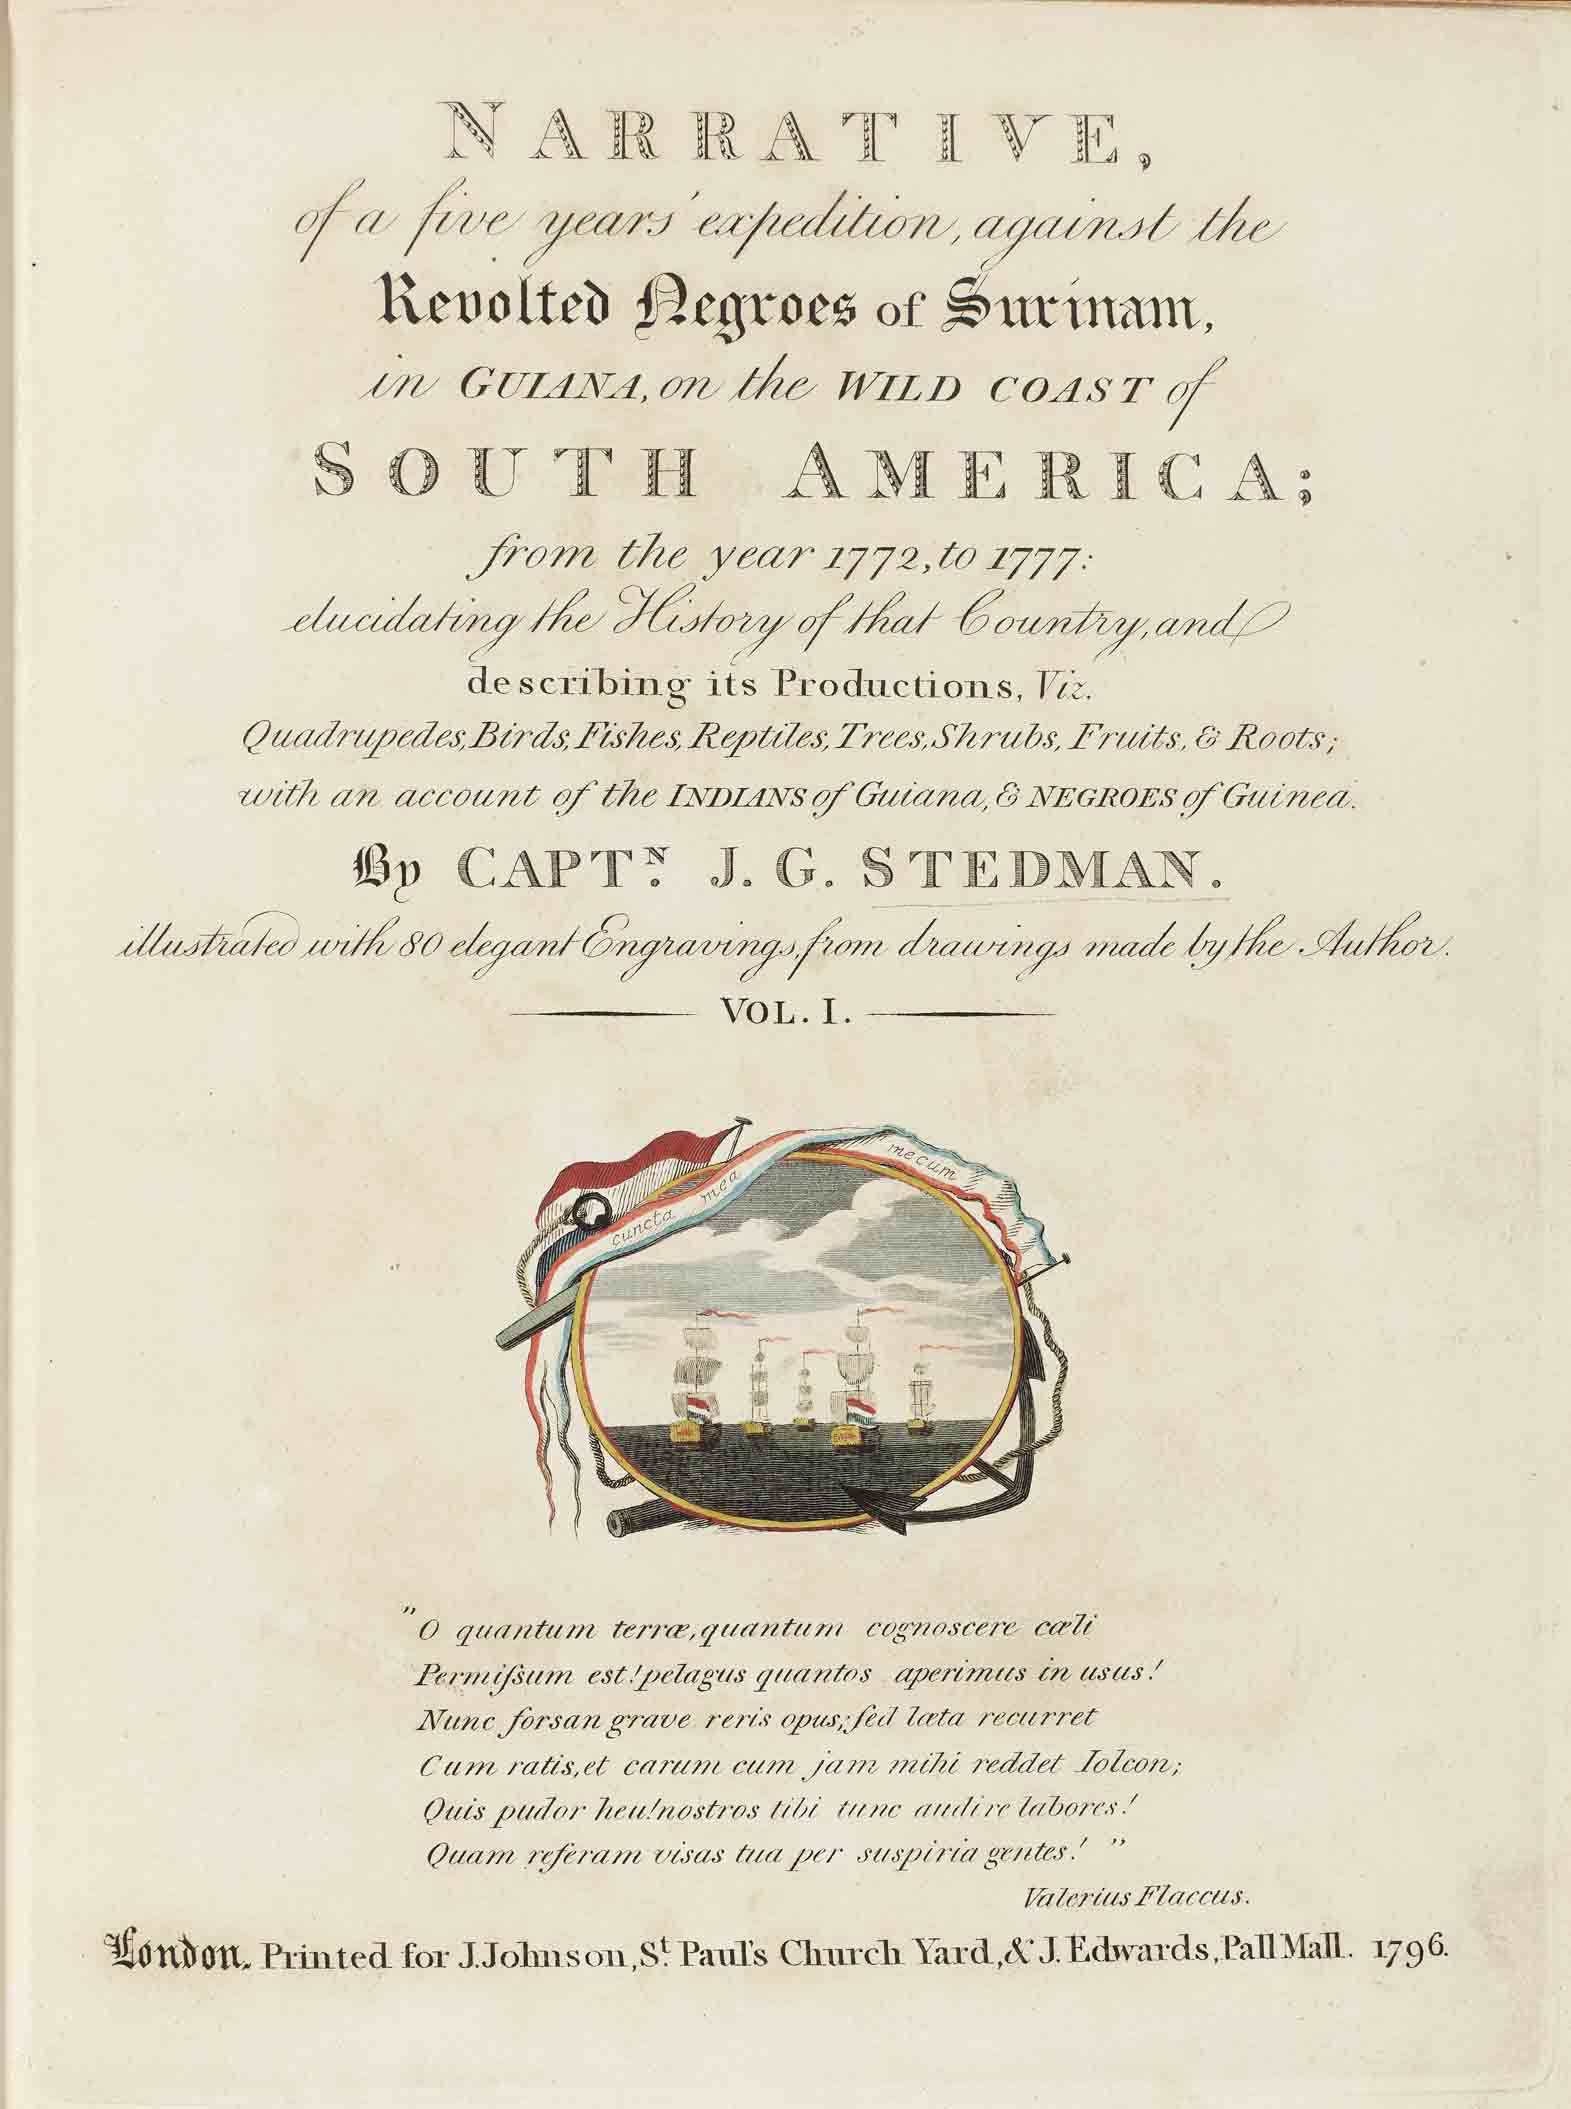 NARRATIVE,
of a five years' expedition, against the
Revolted Negroes of Surinam,
in GUIANA, on the WILD COAST of
SOUTH AMERICA;
from the year 1772, to 1777:
elucidating the History of that Country, and
describing its Productions, Viz.
Quadrupedes, Birds, Fishes, Reptiles, Trees, Shrubs, Fruits, & Roots;
with an account of the INDIANS of Guiana, & NEGROES of Guinea.
By CAPTN. J. G. STEDMAN.
illustrated with 80 elegant Engravings, from drawings made by the Author.
VOL. I.
cuncta mea mecum
"O quantum terræ, quantum cognoscere cæli
Permiſsum est! pelagus quantos aperimus in usus!
Nunc forsan grave reris opus; ſed læta recurret
Cum ratis, et carum cum jam mihi reddet Iolcon;
Quis pudor heu! nostros tibi tunc audire labores!
Quam referam visas tua per suspiria gentes!"
Valerius Flaccus.
London. Printed for J. Johnson, St. Paul's Church Yard, & J. Edwards, Pall Mall. 1796.